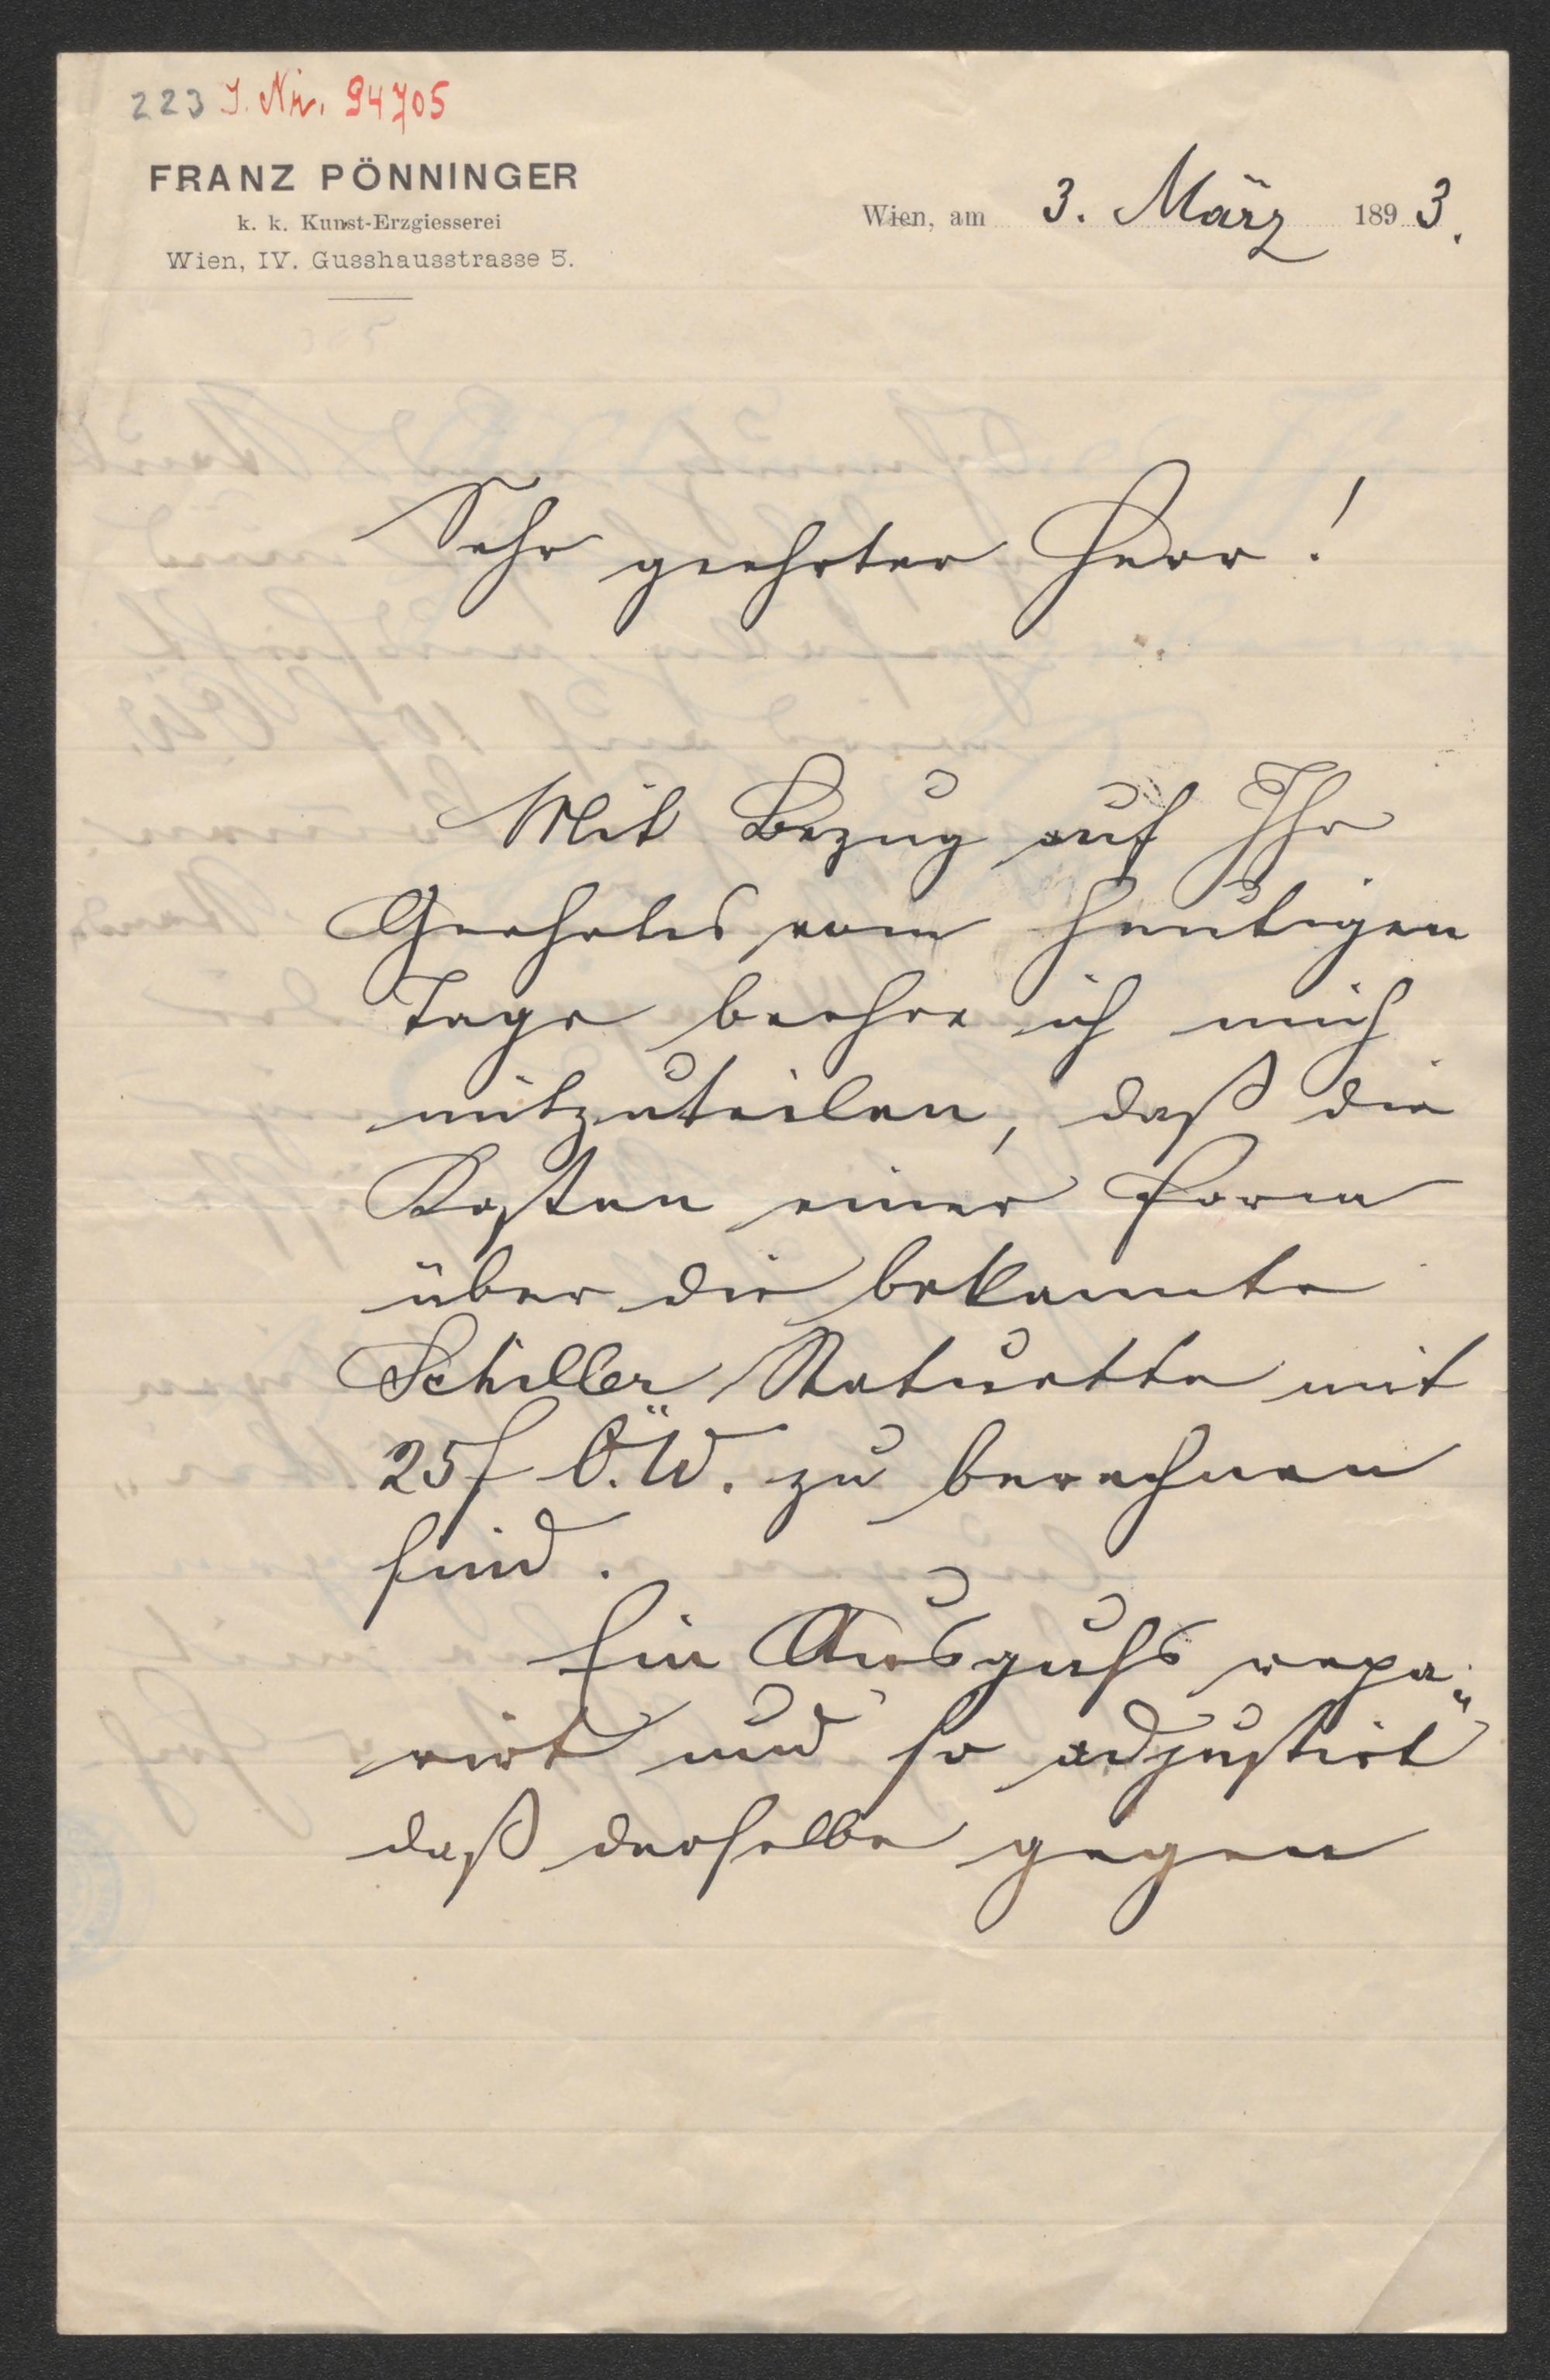 223 J. Nr. 94705
FRANZ PÖNNINGER
k. k. Kunst-Erzgiesserei
Wien, IV. Gusshausstrasse 5.
Wien, am 3. März 1893.
Sehr geehrter Herr!
Mit Bezug auf Ihr
Geehrtes vom heutigen
Tage beehre ich mich
mitzuteilen, daß die
Kosten einer Form
über die bekannte
Schiller Statuette mit
25f Ö.W. zu berechnen
sind.
Ein Ausguss repa„
rirt und so adjustirt
daß derselbe gegen